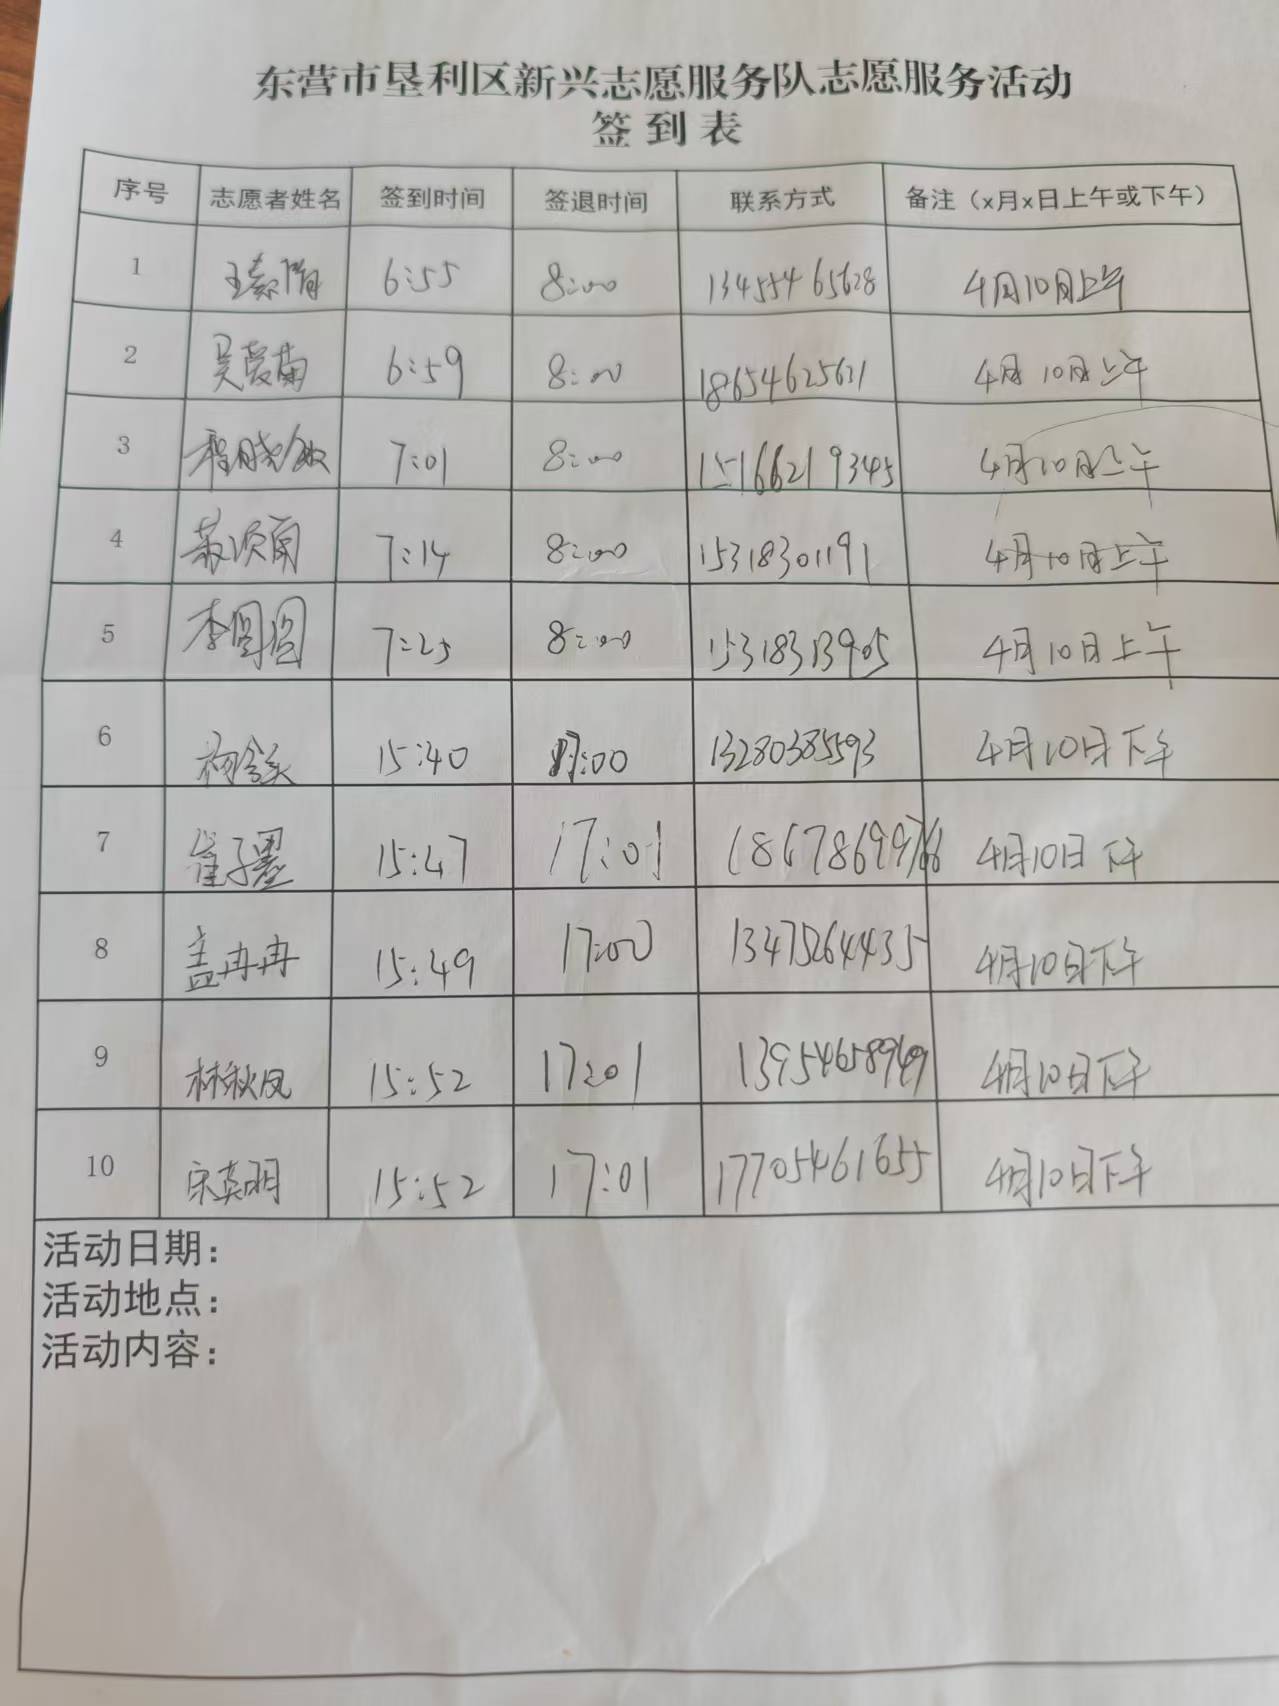 东营市垦利区新兴志愿服务队志愿服务活动
签到表
序号 志愿者姓名 签到时间 签退时间 联系方式 备注（x月x日上午或下午）
1 王 6:55 8:00 13455465628 4月10日上午
2 吴爱菊 6:59 8:00 18654625621 4月10日上午
3 程晓敏 7:01 8:00 15166219345 4月10日上午
4 7:14 8:00 15318301191 4月10日上午
5 李圆圆 7:25 8:00 15318313905 4月10日上午
6 15:40 17:00 13280385593 4月10日下午
7 崔子墨 15:47 17:01 4月10日下午
8 盖冉冉 15:49 17:00 13475264435 4月10日下午
9 林秋凤 15:52 17:01 4月10日下午
10 宋英明 15:52 17:01 17705461655 4月10日下午
活动日期：
活动地点：
活动内容：